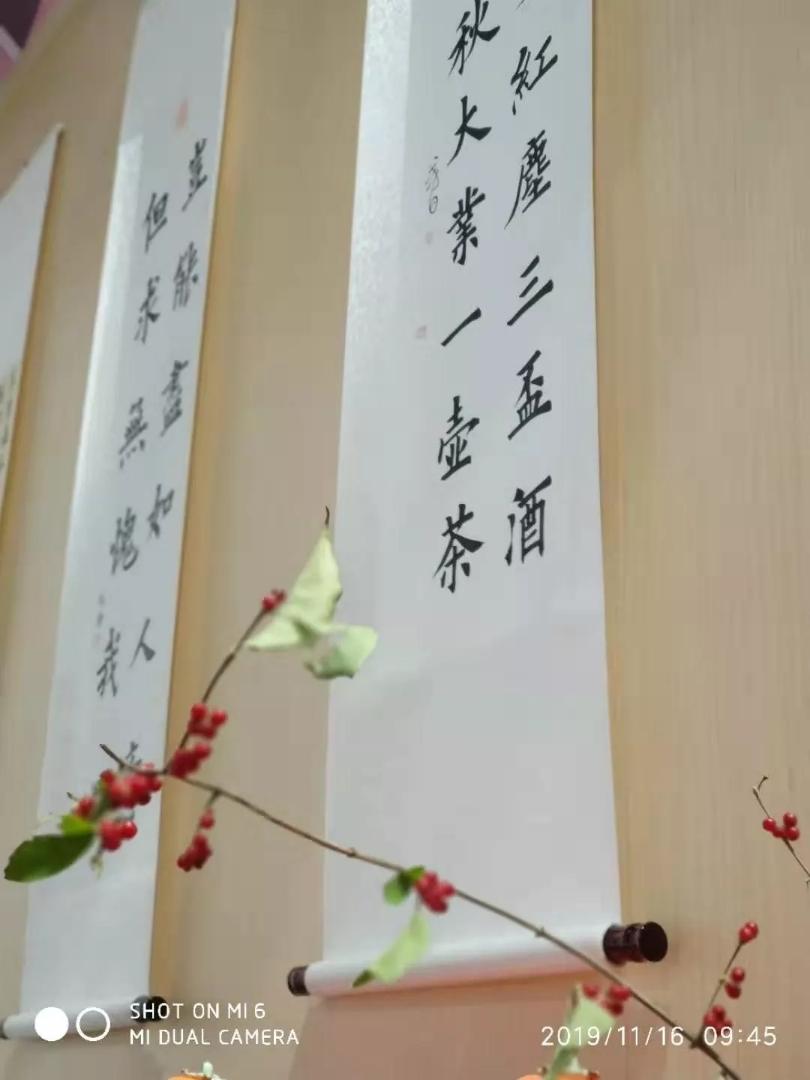 紅塵三盃酒
秋大業一壺茶
豈能盡如人
但求無愧我
SHOT ON MI 6
MI DUAL CAMERA
2019/11/16 09:45